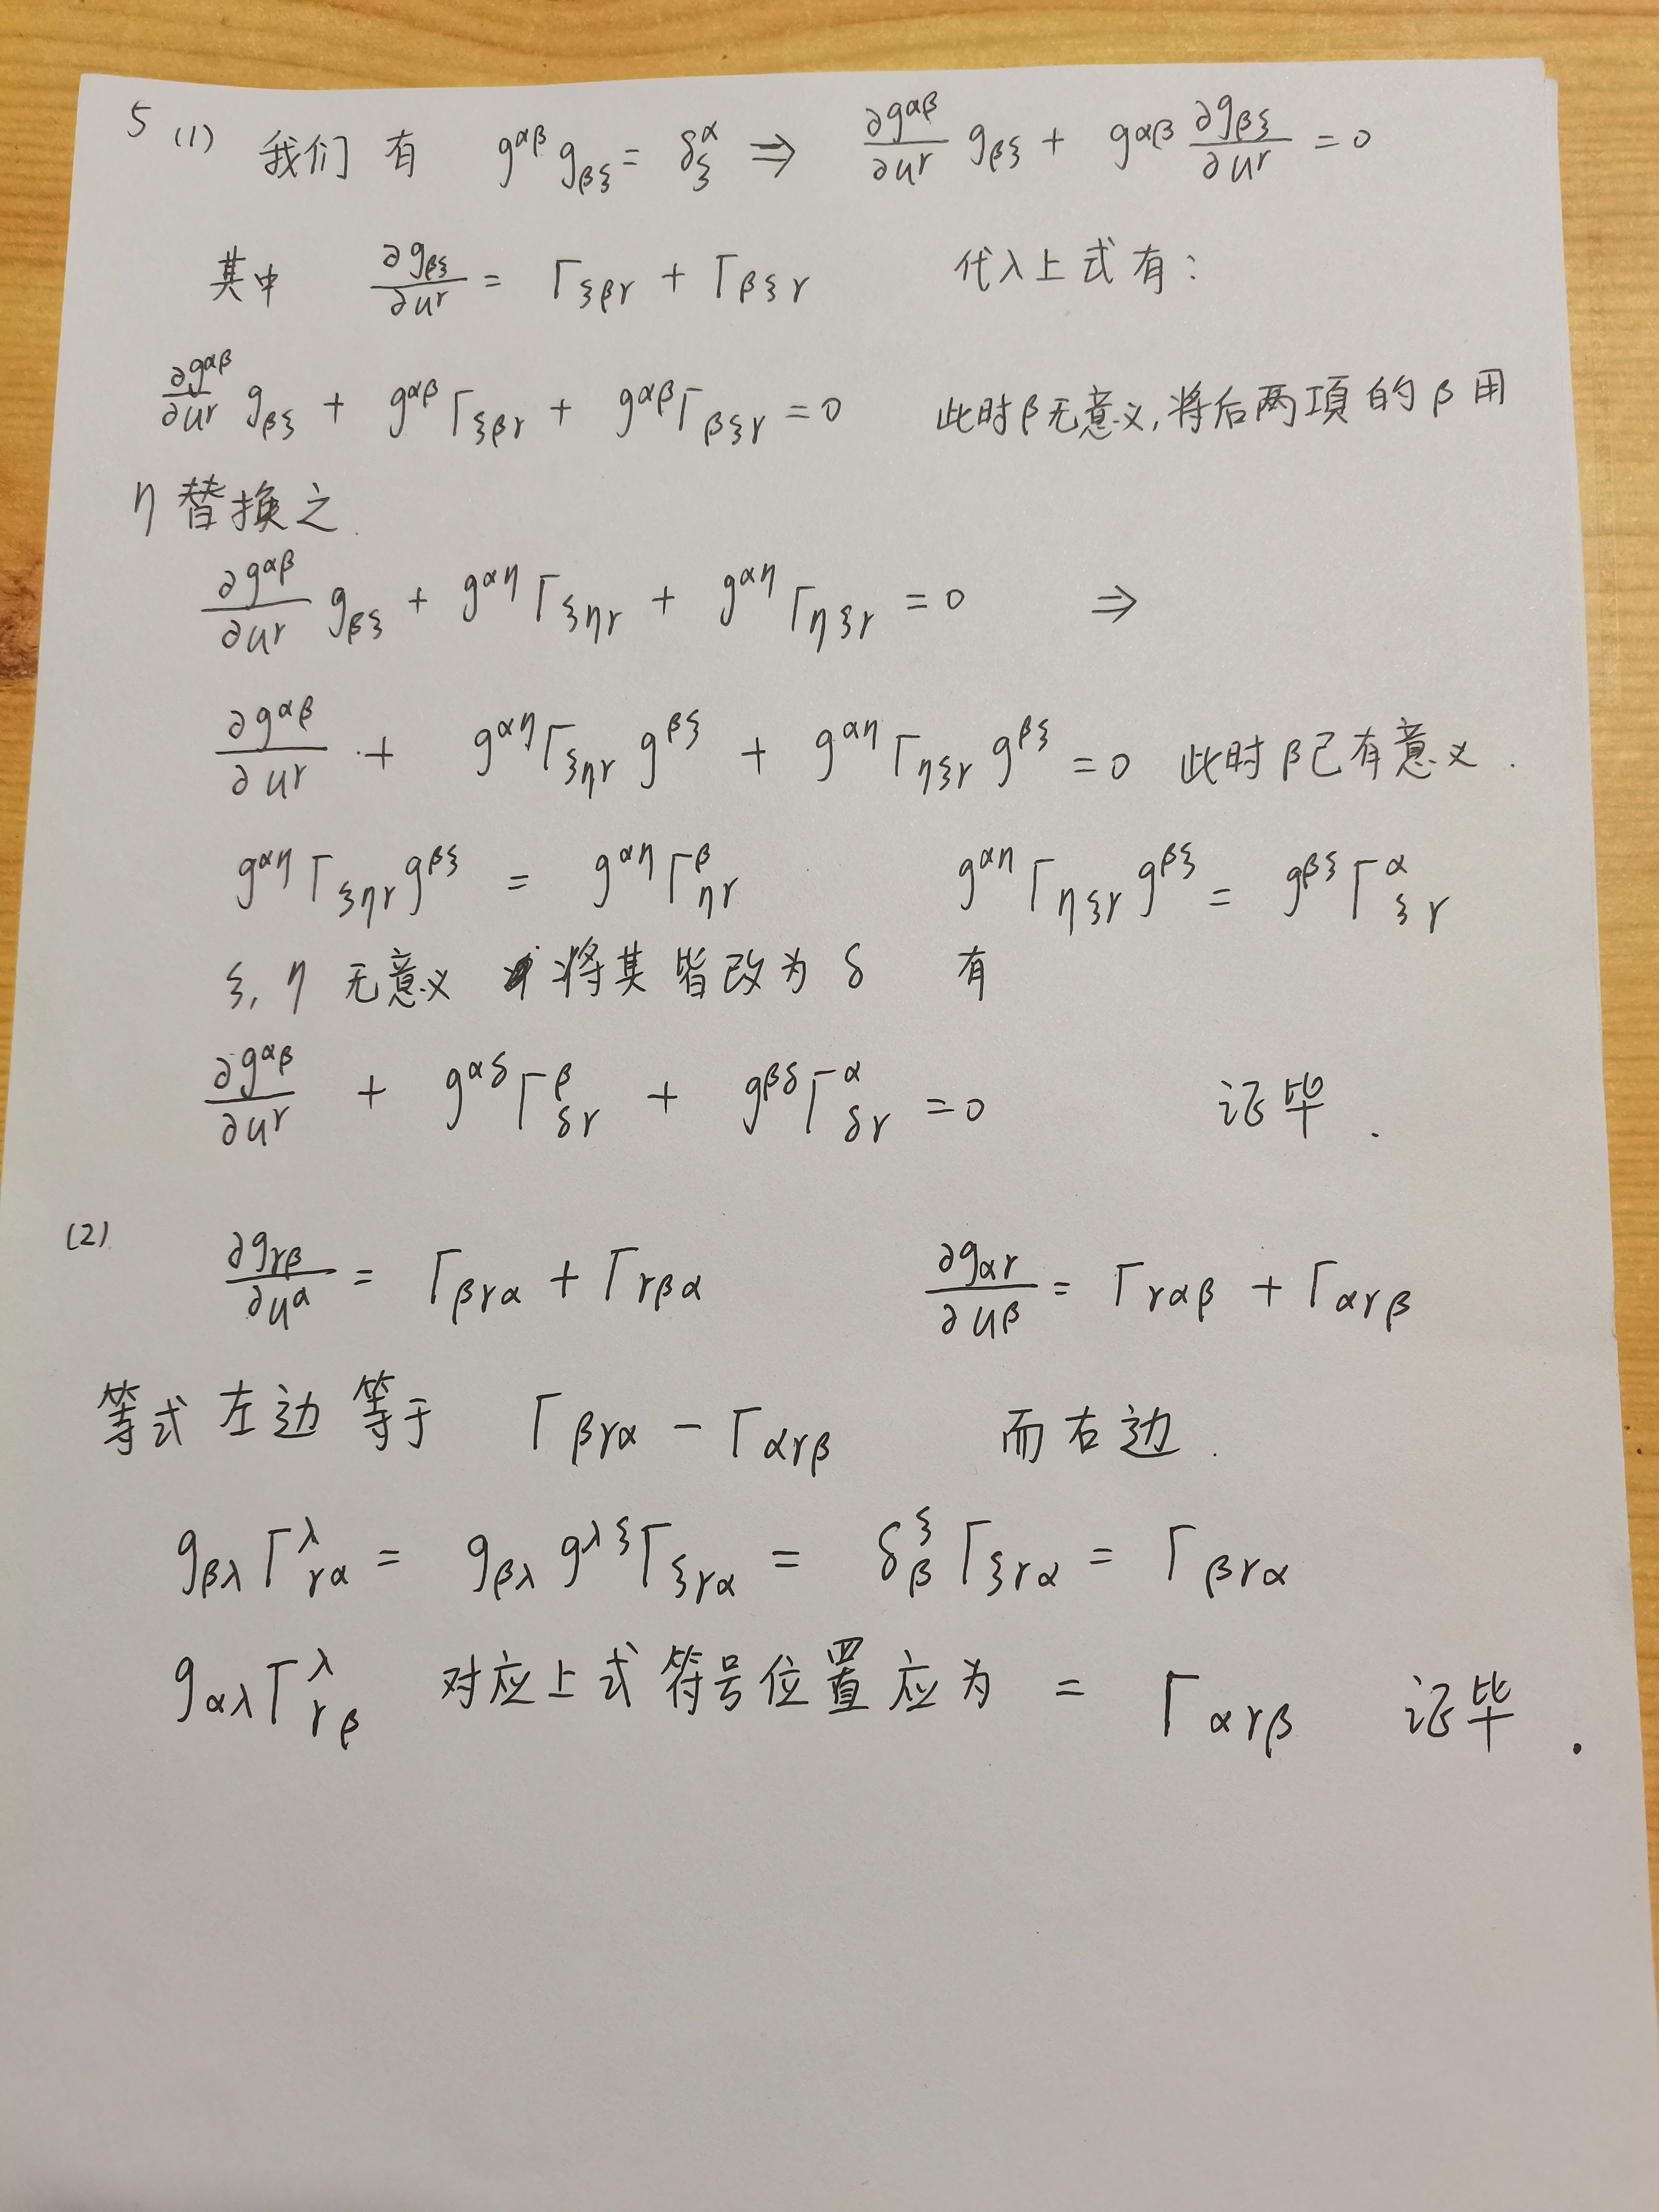 5 (1) 我们有 g^{αβ} g_{βξ} = δ^α_ξ ⇒ ∂g^{αβ}/∂u^γ g_{βξ} + g^{αβ} ∂g_{βξ}/∂u^γ = 0
其中 ∂g_{βξ}/∂u^γ = Γ_{ξβγ} + Γ_{βξγ} 代入上式有:
∂g^{αβ}/∂u^γ g_{βξ} + g^{αβ} Γ_{ξβγ} + g^{αβ} Γ_{βξγ} = 0 此时β无意义,将后两项的β用
η替换之.
∂g^{αβ}/∂u^γ g_{βξ} + g^{αη} Γ_{ξηγ} + g^{αη} Γ_{ηξγ} = 0 ⇒
∂g^{αβ}/∂u^γ + g^{αη} Γ_{ξηγ} g^{βξ} + g^{αη} Γ_{ηξγ} g^{βξ} = 0 此时β已有意义.
g^{αη} Γ_{ξηγ} g^{βξ} = g^{αη} Γ^β_{ηγ} g^{αη} Γ_{ηξγ} g^{βξ} = g^{βξ} Γ^α_{ξγ}
ξ, η 无意义 将其皆改为 δ 有
∂g^{αβ}/∂u^γ + g^{αδ} Γ^β_{δγ} + g^{βδ} Γ^α_{δγ} = 0 证毕.
(2) ∂g_{γβ}/∂u^α = Γ_{βγα} + Γ_{γβα} ∂g_{αγ}/∂u^β = Γ_{γαβ} + Γ_{αγβ}
等式左边等于 Γ_{βγα} - Γ_{αγβ} 而右边.
g_{βλ} Γ^λ_{γα} = g_{βλ} g^{λξ} Γ_{ξγα} = δ^ξ_β Γ_{ξγα} = Γ_{βγα}
g_{αλ} Γ^λ_{γβ} 对应上式符号位置应为 = Γ_{αγβ} 证毕.